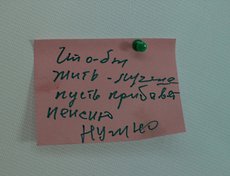 Что-бы
жить - лучше
пусть прибавят
пенсию
НУЖНО